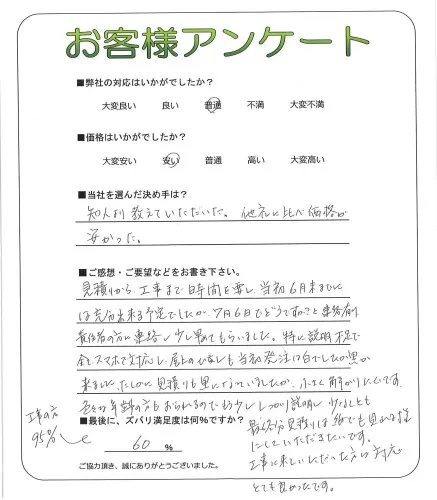 お客様アンケート
■弊社の対応はいかがでしたか?
大変良い 良い 普通 不満 大変不満
■価格はいかがでしたか?
大変安い 安い 普通 高い 大変高い
■当社を選んだ決め手は?
知人より教えていただいた。他社に比べ価格が
安かった。
■ご感想・ご要望などをお書き下さい。
見積りから工事まで時間を要し、当初6月末までに
は充分出来る予定でしたが、7月6日でどうですかと連絡有り
責任者の方に連絡し少し早めてもらいました。特に説明不足で
全てスマホで対応し、屋上の 当初発注は白でしたが黒が
来ました。たしかに見積りも黒になっていましたが、小さく解かりにくいです。
色々な年齢の方もおられるのでもう少ししっかり説明し、少なくとも
■最後に、ズバリ満足度は何%ですか?
最終見積りは誰でも見れる様
にしていただきたいです。
工事に来ていただいた方は対応
とても良かったです。
工事の方
95%
60 %
ご協力頂き、誠にありがとうございました。